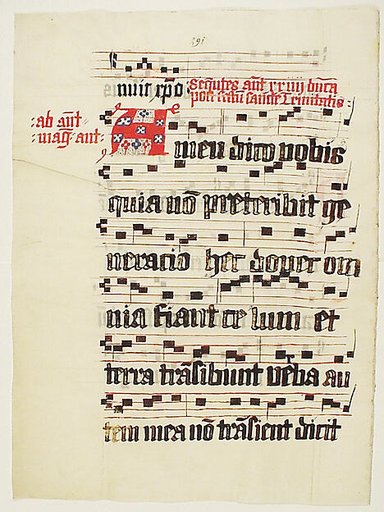 nuit xpo Sequntes ant xxiiij
post sancte Trinitatis
ab ant
mag ant
Amen dico vobis
quia no preteribit ge
neracio hec donec om
nia fiant celum et
terra trasibunt verba au
tem mea no trasient dicit